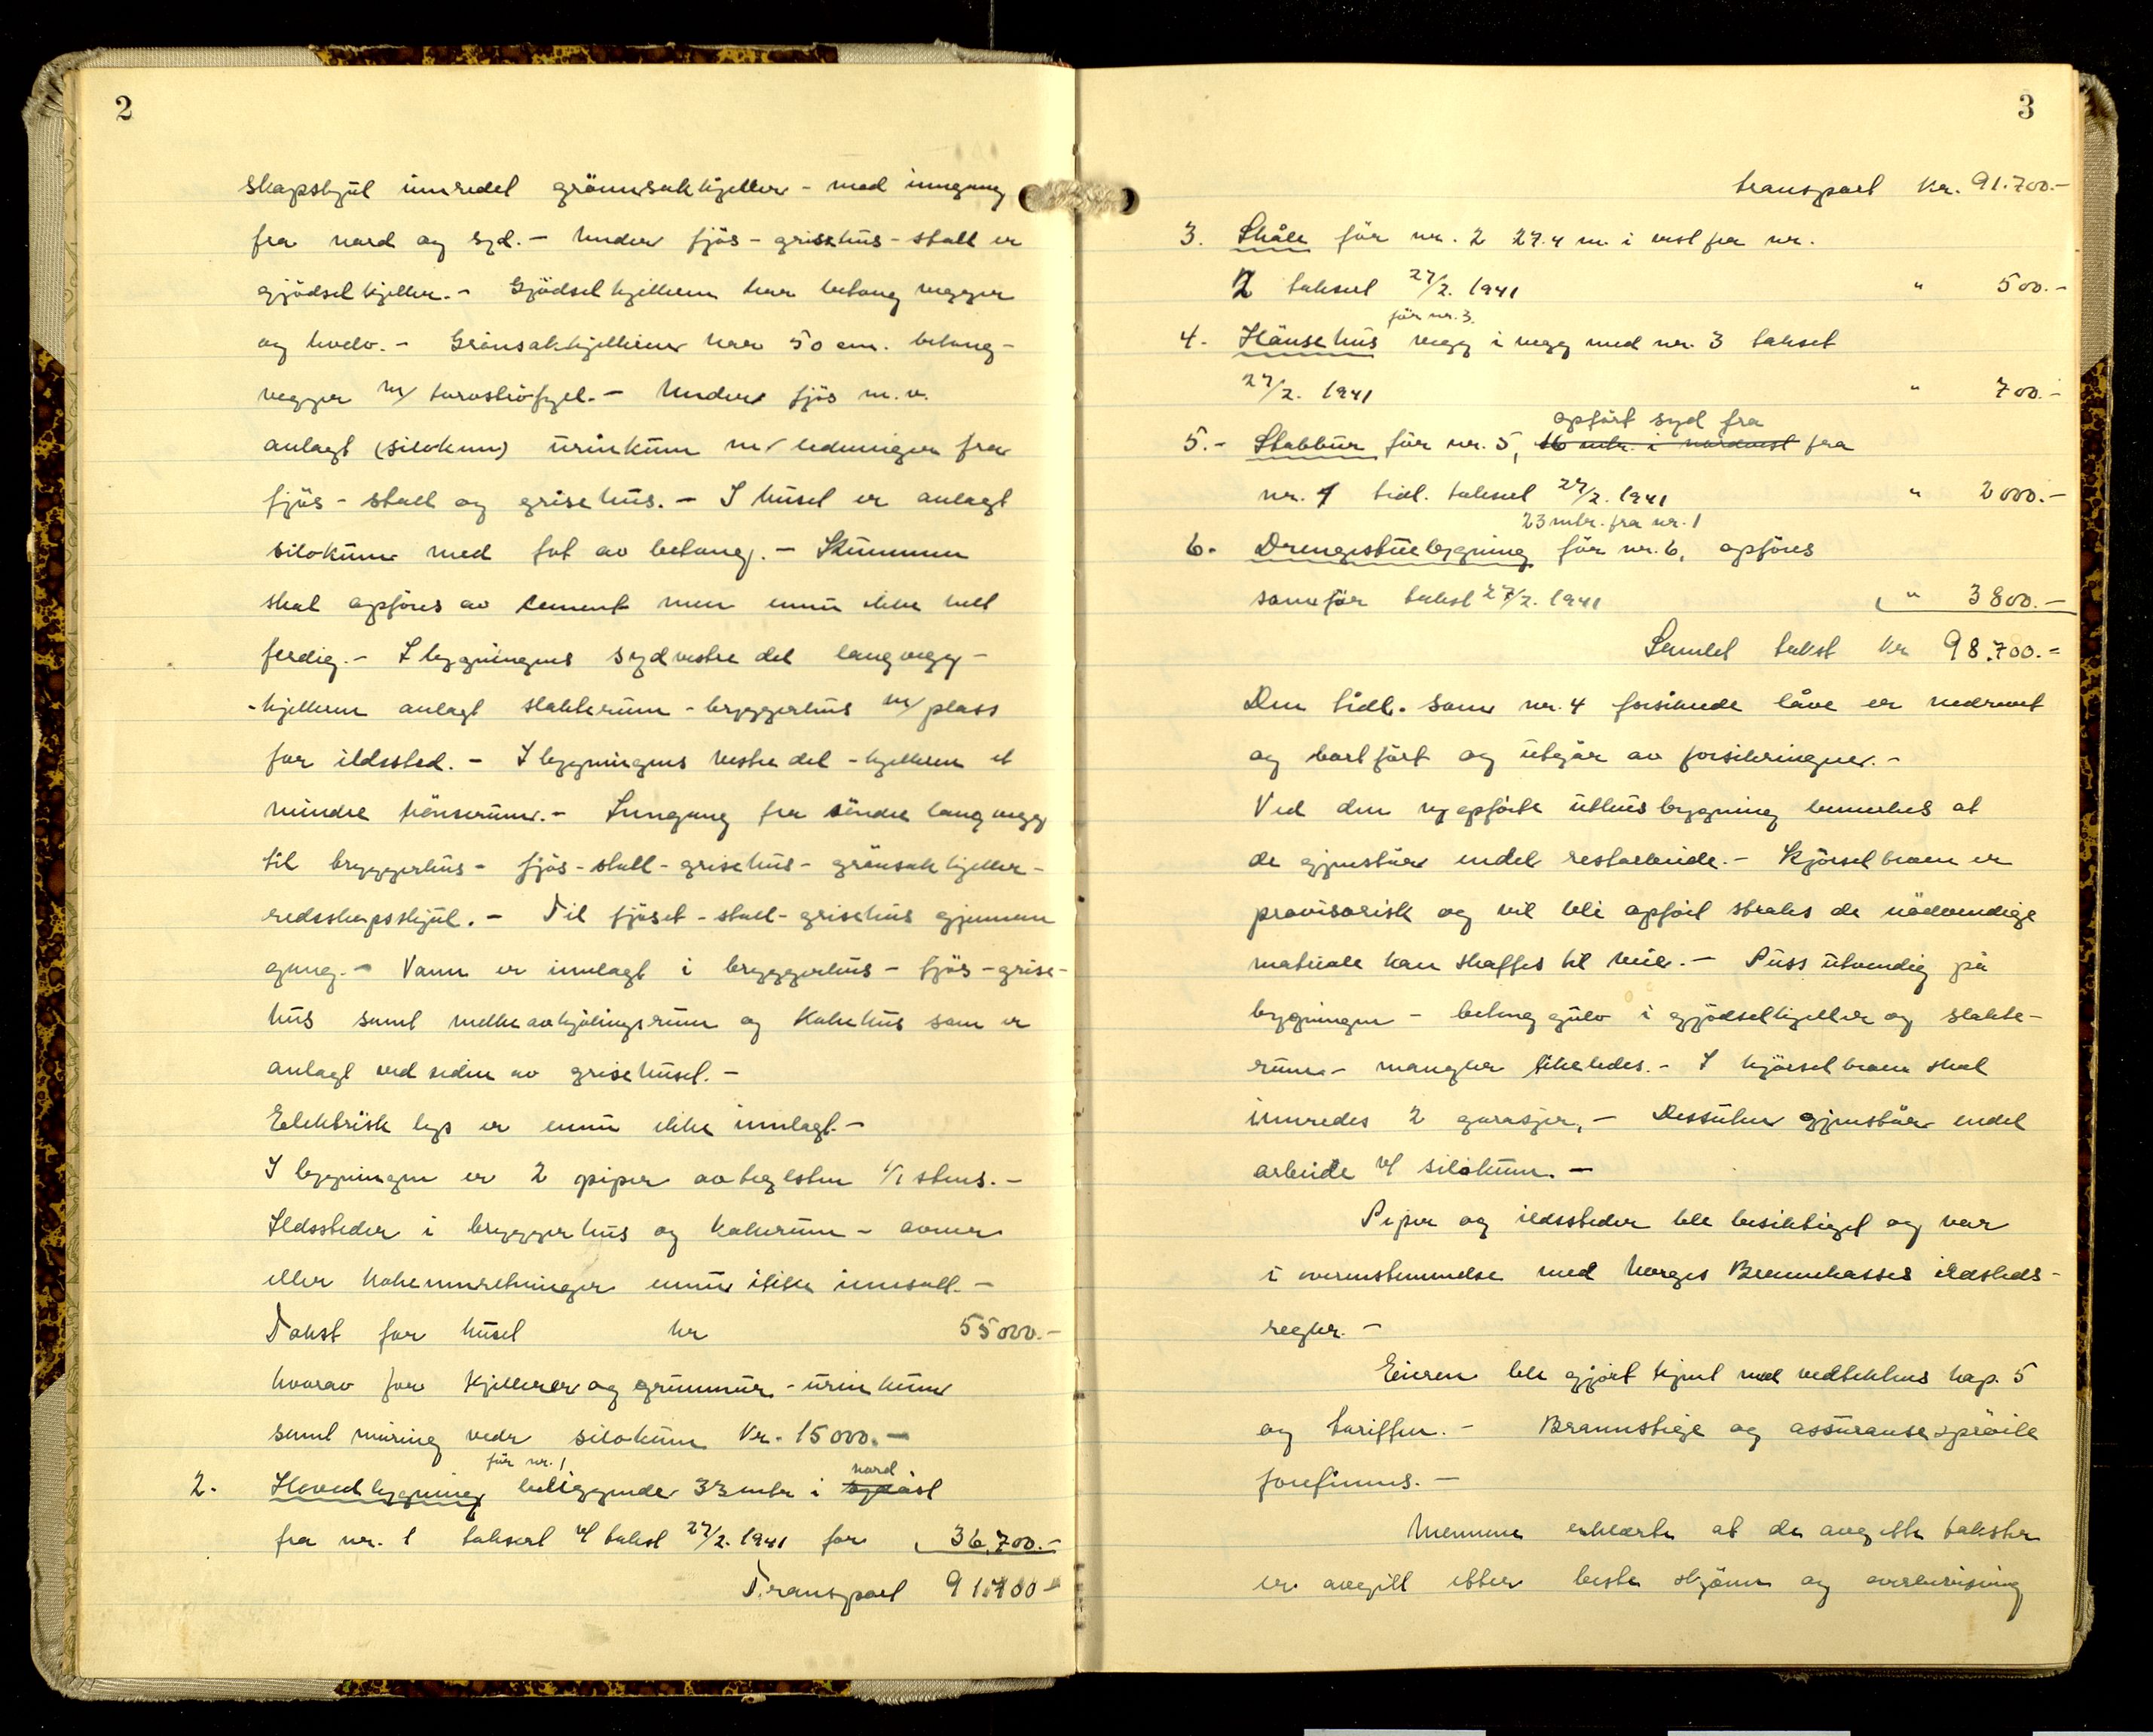 2
skapskjul innredet grönnsakkjeller - med inngang
fra nord og syd. - Under fjös - grisehus - stall er
gjödselkjeller. - Gjödselkjelleren har betong vegger
og hvelv. - Grönsakkjelleren har 50 cm. betong-
vegger m/ Under fjös m.v.
anlagt (silokum) urinkum m/ ledninger fra
fjös - stall og grisehus. - I huset er anlagt
silokum med fot av betong. - Kummen
skal opföres av sement men ennu ikke helt
ferdig. - I bygningens sydvestre del langvegg -
- kjelleren anlagt slakterum - bryggerhus m/ plass
for ildsted. - I bygningens vestre del - kjelleren et
mindre hönserum. - Inngang fra söndre langvegg
til bryggerhus - fjös - stall - grisehus - grönsakkjeller -
redskapsskjul. - Til fjöset - stall - grisehus gjennem
gang. - Vann er innlagt i bryggerhus - fjös - grise-
hus samt melkeavkjölingsrum og kokehus som er
anlagt ved siden av grisehuset. -
Elektrisk lys er ennu ikke innlagt. -
I bygningen er 2 piper av teglsten 1/1 stens. -
Ildssteder i bryggerhus og kokerum - ovner
eller kokeinnretninger ennu ikke innsatt. -
Takst for huset kr 55000.-
hvorav for kjellerer og grunnmur - urinkum
samt muring vedr silokum Kr. 15000.-
för nr. 1 nord
2. Hovedbygning beliggende 33 mtr i syd öst
fra nr. 1 taksert v/ takst 27/2. 1941 for 36.700.-
Transport 91.700-
3
transport Kr. 91.700.-
3. Skåle för nr. 2 27.4 m. i vest fra nr.
2 taksert 27/2. 1941 " 500.-
för nr. 3.
4. Hönsehus vegg i vegg med nr. 3 takset
27/2. 1941 " 700.-
opfört syd fra
5.- Stabbur för nr. 5, 16 mtr. i nordvest fra
nr. 1 tidl. taksert 27/2. 1941 " 2000.-
23 mtr. fra nr. 1
6. Drengestuebygning för nr. 6, opföres
som för takst 27/2. 1941 " 3800.-
Samlet takst kr 98.700.-
Den tidl. som nr. 4 forsikrede låve er nedrevet
og bortfört og utgår av forsikringen. -
Ved den nyopförte uthusbygning bemerkes at
de gjenstår endel restarbeide. - Kjörselbroen er
provisorisk og vil bli opfört straks de nödvendige
materiale kan skaffes til veie. - Puss utvendig på
bygningen - betong gulv i gjödselkjeller og slakte-
rum - mangler likeledes. - I kjörselbroen skal
innredes 2 garasjer, - Dessuten gjenstår endel
arbeide v/ silokum. -
Piper og ildssteder ble besiktiget og var
i overenstemmelse med Norges Brannkasses ildsteds-
regler. -
Eieren ble gjort kjent med vedtektens kap. 5
og tariffen. - Brannstige og assuransespröite
forefinnes. -
Mennene erklærte at de avgitte takster
er avgitt etter beste skjönn og overbevisning